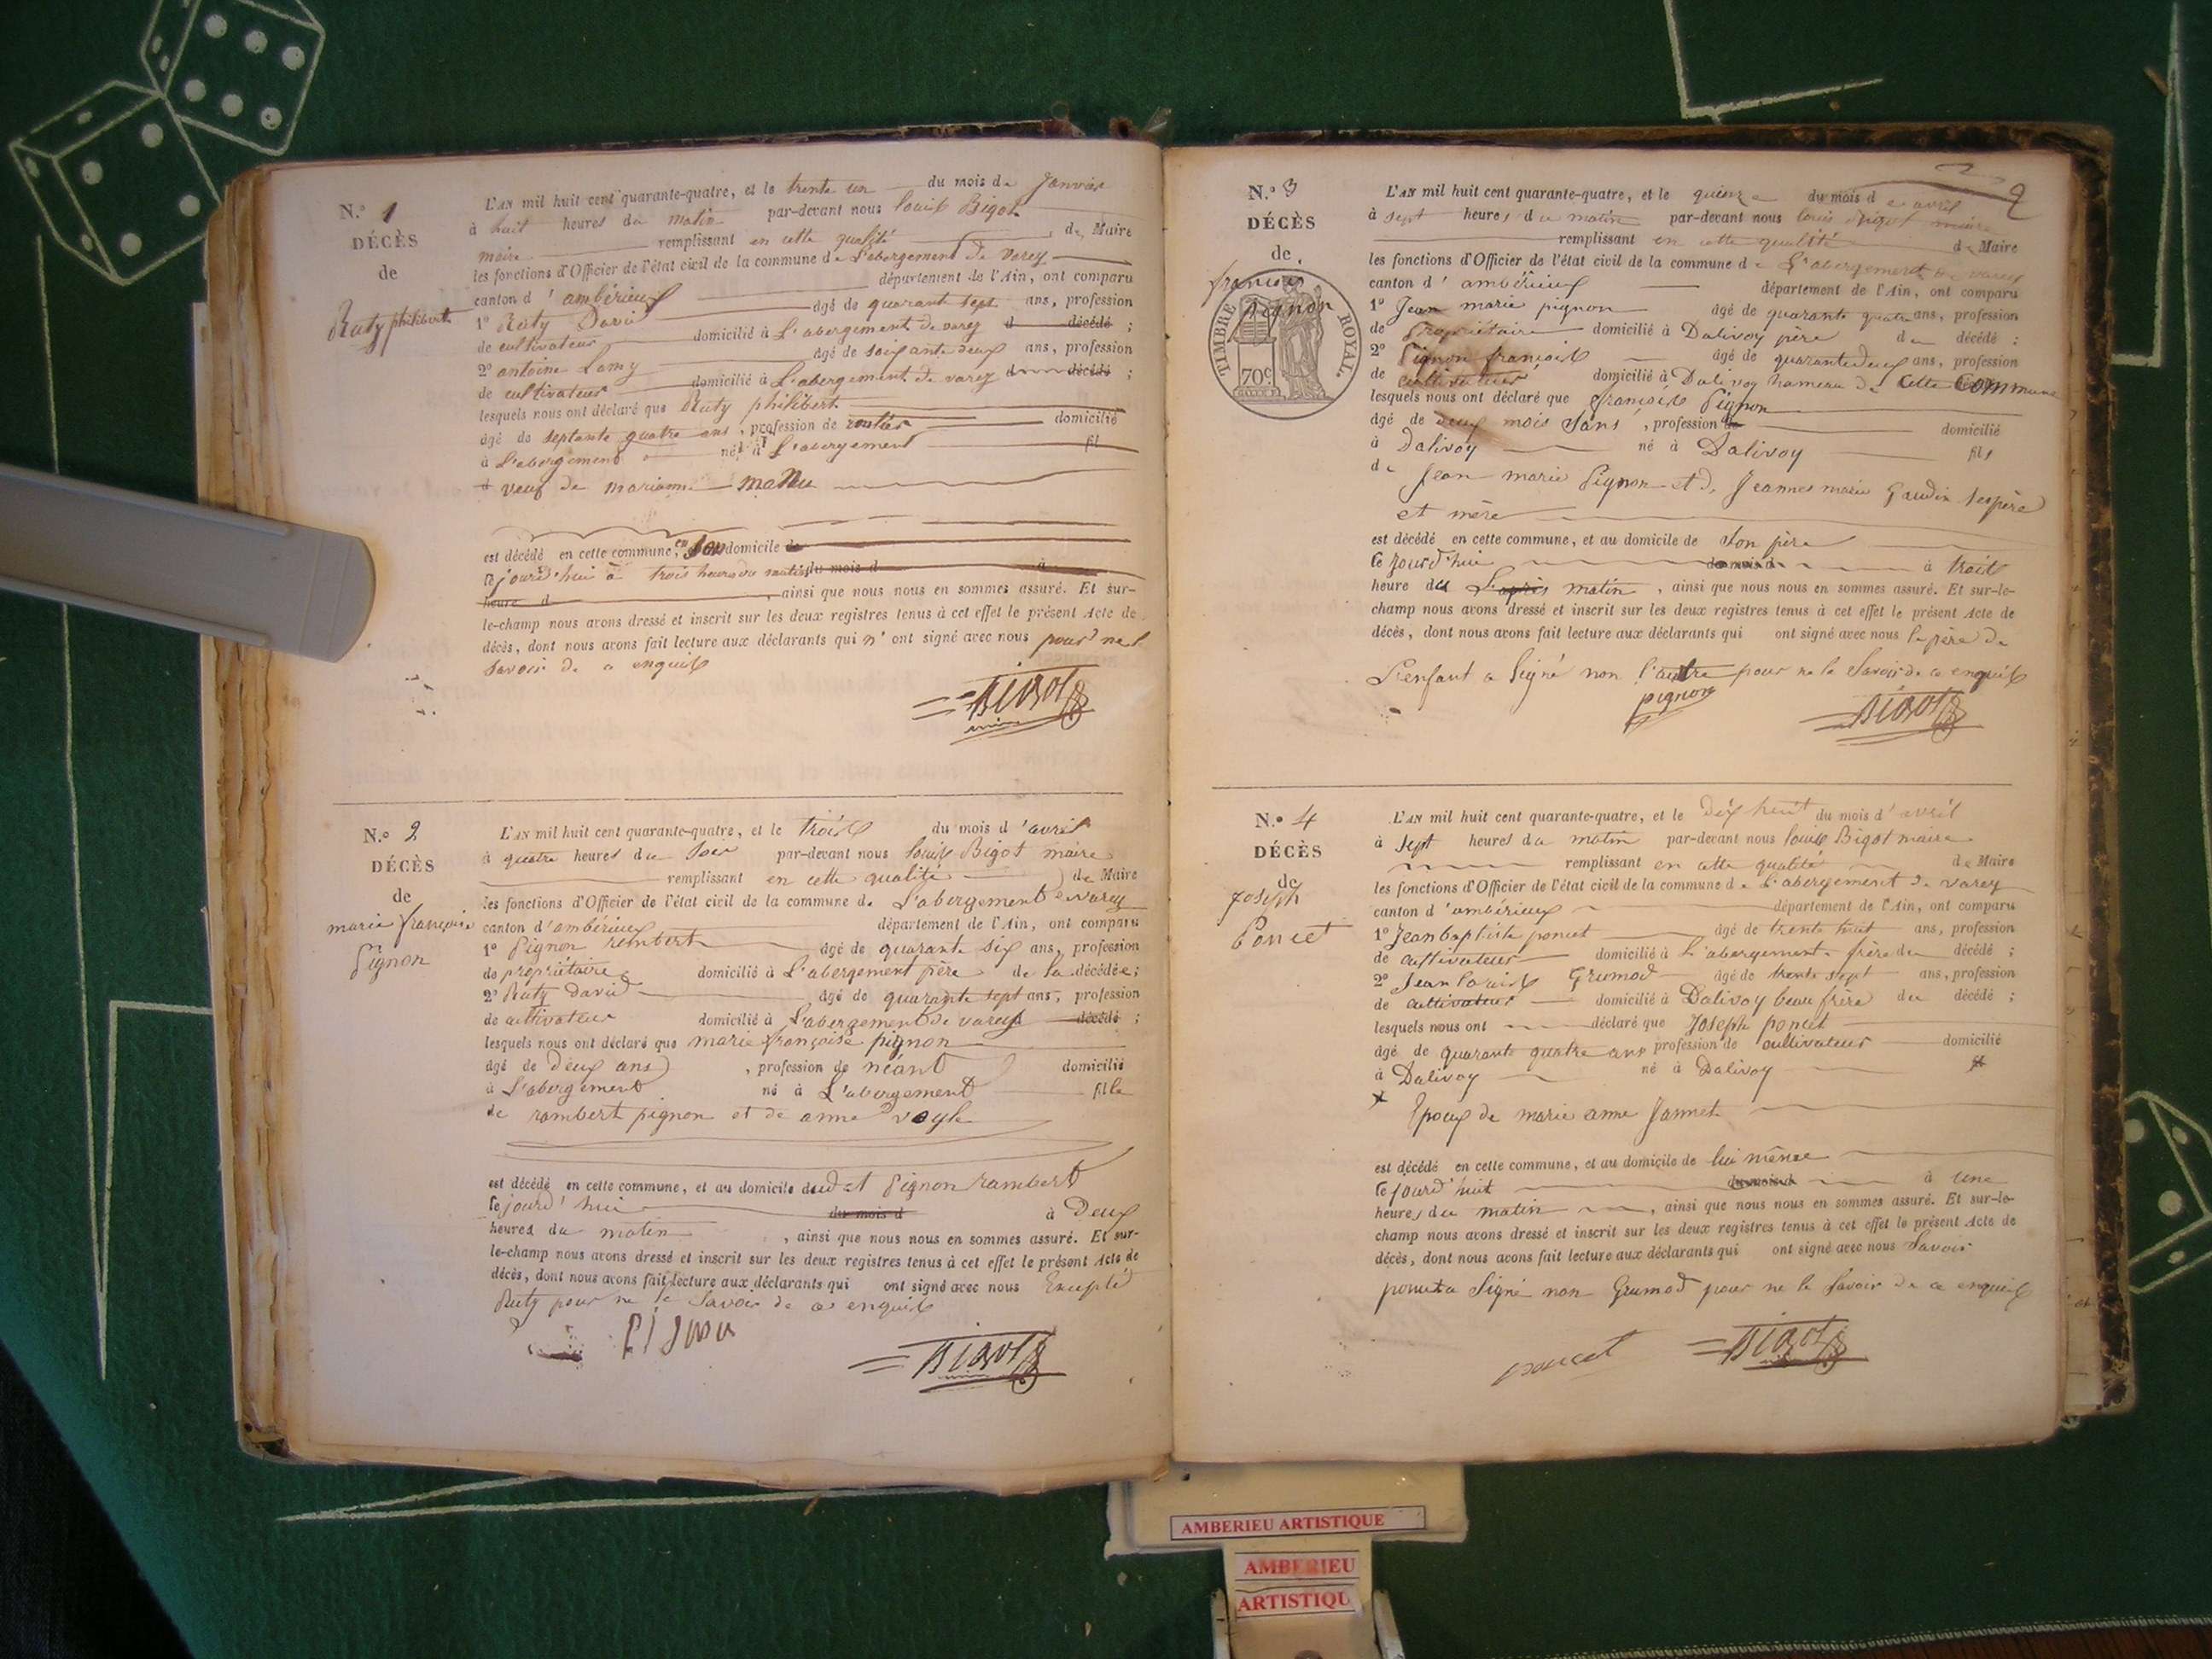 N.º 1
DÉCÈS
de
Ruty philibert
L'AN mil huit cent quarante-quatre, et le trente un du mois de Janvier
à huit heures du matin par-devant nous louis Bigot
maire remplissant en cette qualité de Maire
les fonctions d'Officier de l'état civil de la commune de L'abergement de varey
canton d'ambérieux département de l'Ain, ont comparu
1º Ruty David âgé de quarant sept ans, profession
de cultivateur domicilié à L'abergement de varey d décédé ;
2º antoine Lamy âgé de soixante deux ans, profession
de cultivateur domicilié à L'abergement de varey d décédé ;
lesquels nous ont déclaré que Ruty philibert
âgé de septante quatre ans, profession de rentier domicilié
à L'abergement né à L'abergement fil
veuf de marianne
est décédé en cette commune, en son domicile de
le jourd'hui à trois heures du matin du mois d à
heure d , ainsi que nous nous en sommes assuré. Et sur-
le-champ nous avons dressé et inscrit sur les deux registres tenus à cet effet le présent Acte de
décès, dont nous avons fait lecture aux déclarants qui n'ont signé avec nous pour ne l
savoir de ce enquis
Bigot
N.º 2
DÉCÈS
de
marie françoise
Pignon
L'AN mil huit cent quarante-quatre, et le trois du mois d'avril
à quatre heures du soir par-devant nous louis Bigot maire
remplissant en cette qualité de Maire
les fonctions d'Officier de l'état civil de la commune de L'abergement de varey
canton d'ambérieux département de l'Ain, ont comparu
1º Pignon rembert âgé de quarante six ans, profession
de propriétaire domicilié à L'abergement père de la décédée ;
2º Ruty david âgé de quarante sept ans, profession
de cultivateur domicilié à L'abergement de varey d décédé ;
lesquels nous ont déclaré que marie françoise pignon
âgé de deux ans , profession de néant domicilié
à L'abergement né à L'abergement fille
de rambert pignon et de anne
est décédé en cette commune, et au domicile dudit Pignon rambert
le jourd'hui du mois d à Deux
heures du matin , ainsi que nous nous en sommes assuré. Et sur-
le-champ nous avons dressé et inscrit sur les deux registres tenus à cet effet le présent Acte de
décès, dont nous avons fait lecture aux déclarants qui ont signé avec nous Excepté
Ruty pour ne le savoir de ce enquis
Pignon
Bigot
2
N.º 3
DÉCÈS
de
françois
Pignon
TIMBRE ROYAL.
70c
L'AN mil huit cent quarante-quatre, et le quinze du mois d'avril
à sept heures du matin par-devant nous louis Bigot maire
remplissant en cette qualité de Maire
les fonctions d'Officier de l'état civil de la commune de L'abergement de varey
canton d'ambérieux département de l'Ain, ont comparu
1º Jean marie pignon âgé de quarante quatre ans, profession
de Propriétaire domicilié à Dalivoy père du décédé ;
2º Pignon françois âgé de quarante deux ans, profession
de cultivateur domicilié à Dalivoy hameau de cette commune
lesquels nous ont déclaré que françois Pignon
âgé de deux mois sans , profession de domicilié
à Dalivoy né à Dalivoy fils
de Jean marie Pignon et de Jeanne marie Gaudin ses père
et mère
est décédé en cette commune, et au domicile de son père
le jourd'hui du mois d à trois
heure du matin , ainsi que nous nous en sommes assuré. Et sur-le-
champ nous avons dressé et inscrit sur les deux registres tenus à cet effet le présent Acte de
décès, dont nous avons fait lecture aux déclarants qui ont signé avec nous le père de
L'enfant a signé non l'autre pour ne le savoir de ce enquis
pignon
Bigot
N.º 4
DÉCÈS
de
Joseph
Poncet
L'AN mil huit cent quarante-quatre, et le Dix huit du mois d'avril
à sept heures du matin par-devant nous louis Bigot maire
remplissant en cette qualité de Maire
les fonctions d'Officier de l'état civil de la commune de L'abergement de varey
canton d'ambérieux département de l'Ain, ont comparu
1º Jean baptiste poncet âgé de trente huit ans, profession
de cultivateur domicilié à L'abergement frère du décédé ;
2º Jean louis Grumod âgé de trente sept ans, profession
de cultivateur domicilié à Dalivoy beau frère du décédé ;
lesquels nous ont déclaré que Joseph poncet
âgé de quarante quatre ans profession de cultivateur domicilié
à Dalivoy né à Dalivoy
Epoux de marie anne Jannet
est décédé en cette commune, et au domicile de lui même
le jourd'huit du mois d à une
heures du matin , ainsi que nous nous en sommes assuré. Et sur-le-
champ nous avons dressé et inscrit sur les deux registres tenus à cet effet le présent Acte de
décès, dont nous avons fait lecture aux déclarants qui ont signé avec nous Savoir
poncet a signé non Grumod pour ne le savoir de ce enquis
poncet
Bigot
AMBERIEU ARTISTIQUE
AMBERIEU
ARTISTIQU